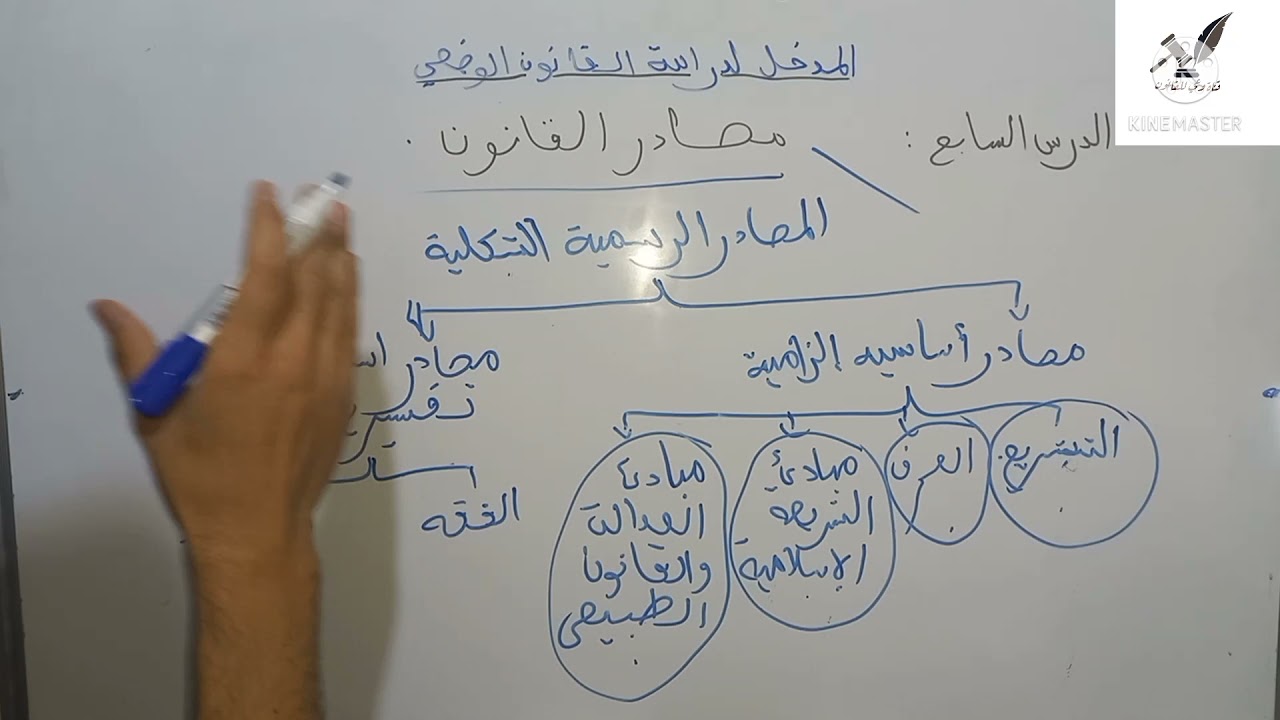 المدخل لدراسة القانون الوضعي
الدرس السابع :
مصادر القانون .
المصادر الرسمية الشكلية
مصادر أساسيه إلزامية
التشريع.
العرف
مبادئ
الشريعه
الإسلامية
مبادئ
العدالة
والقانون
الطبيعي
مصادر
الفقه
KINEMASTER